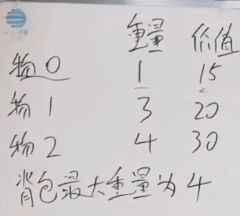 重量 价值
物0 1 15
物1 3 20
物2 4 30
背包最大重量为4